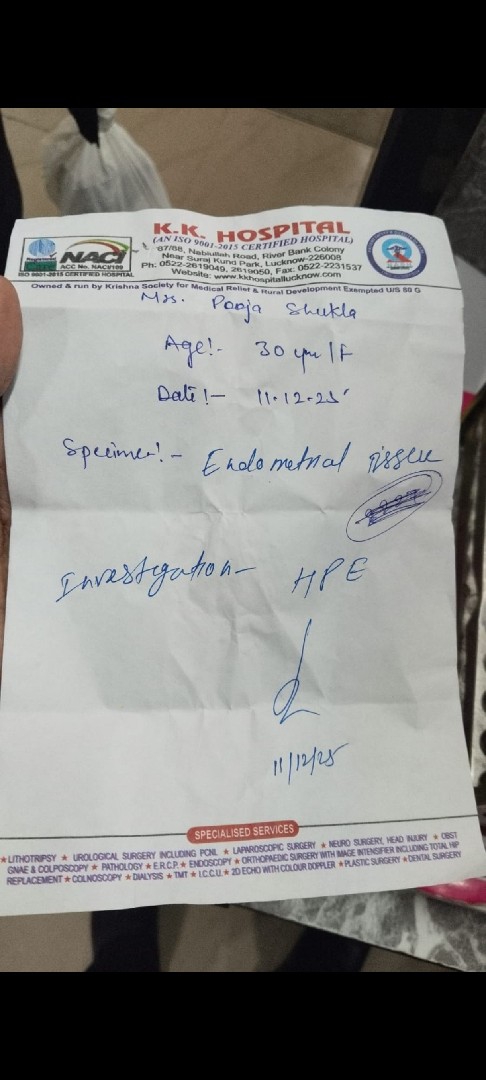 K.K. HOSPITAL
(AN ISO 9001-2015 CERTIFIED HOSPITAL)
87/88, Nabiullah Road, River Bank Colony
Near Suraj Kund Park, Lucknow-226008
Ph: 0522-2619049, 2619050, Fax: 0522-2231537
Website: www.kkhospitallucknow.com
NACI
ACC No. NACI/109
ISO 9001-2015 CERTIFIED HOSPITAL
Owned & run by Krishna Society for Medical Relief & Rural Development Exempted U/S 80 G
Mrs. Pooja Shukla
Age:- 30 yrs/F
Date:- 11.12.25
Specimen:- Endometrial tissue
Investigation- HPE
11/12/25
SPECIALISED SERVICES
★ LITHOTRIPSY ★ UROLOGICAL SURGERY INCLUDING PCNL ★ LAPAROSCOPIC SURGERY ★ NEURO SURGERY, HEAD INJURY ★ OBST
GNAE & COLPOSCOPY ★ PATHOLOGY ★ E.R.C.P. ★ ENDOSCOPY ★ ORTHOPAEDIC SURGERY WITH IMAGE INTENSIFIER INCLUDING TOTAL HIP
REPLACEMENT ★ COLNOSCOPY ★ DIALYSIS ★ TMT ★ I.C.C.U. ★ 2D ECHO WITH COLOUR DOPPLER ★ PLASTIC SURGERY ★ DENTAL SURGERY